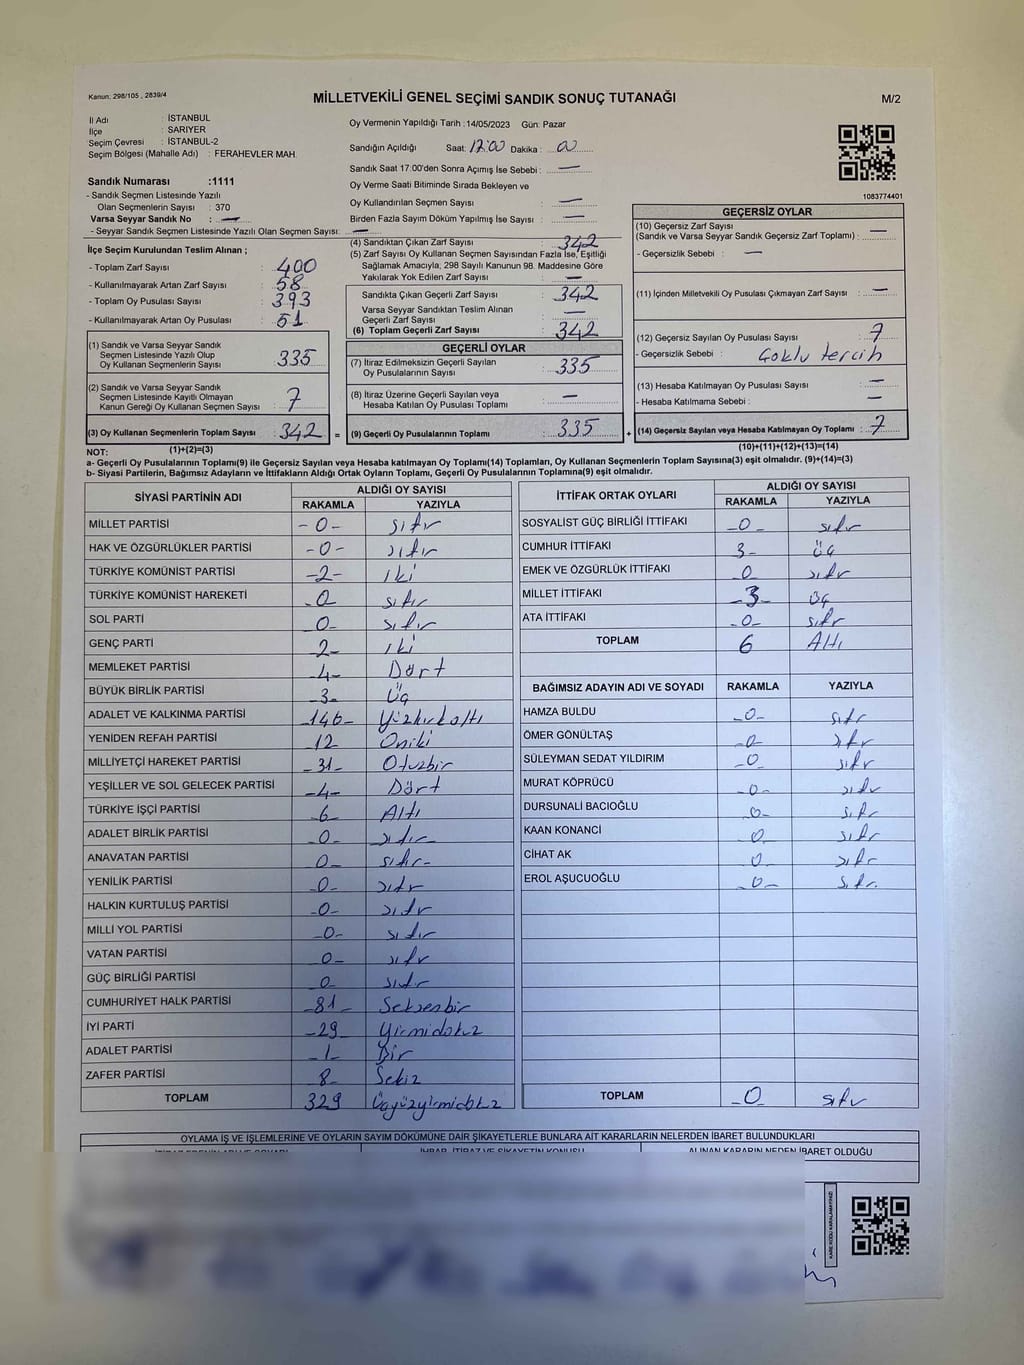 Kanun: 298/105 , 2839/4
MİLLETVEKİLİ GENEL SEÇİMİ SANDIK SONUÇ TUTANAĞI
M/2
İl Adı : İSTANBUL
İlçe : SARIYER
Seçim Çevresi : İSTANBUL-2
Seçim Bölgesi (Mahalle Adı) : FERAHEVLER MAH.
Oy Vermenin Yapıldığı Tarih :14/05/2023 Gün: Pazar
Sandığın Açıldığı Saat: 17:00 Dakika: 00
Sandık Saat 17:00'den Sonra Açımış İse Sebebi : —
Oy Verme Saati Bitiminde Sırada Bekleyen ve
Oy Kullandırılan Seçmen Sayısı : —
Birden Fazla Sayım Döküm Yapılmış İse Sayısı : —
1083774401
Sandık Numarası :1111
- Sandık Seçmen Listesinde Yazılı
Olan Seçmenlerin Sayısı : 370
Varsa Seyyar Sandık No : —
- Seyyar Sandık Seçmen Listesinde Yazılı Olan Seçmen Sayısı: —
İlçe Seçim Kurulundan Teslim Alınan ;
- Toplam Zarf Sayısı : 400
- Kullanılmayarak Artan Zarf Sayısı : 58
- Toplam Oy Pusulası Sayısı : 393
- Kullanılmayarak Artan Oy Pusulası : 51
(1) Sandık ve Varsa Seyyar Sandık
Seçmen Listesinde Yazılı Olup
Oy Kullanan Seçmenlerin Sayısı : 335
(2) Sandık ve Varsa Seyyar Sandık
Seçmen Listesinde Kayıtlı Olmayan
Kanun Gereği Oy Kullanan Seçmen Sayısı : 7
(3) Oy Kullanan Seçmenlerin Toplam Sayısı : 342 =
(1)+(2)=(3)
(4) Sandıktan Çıkan Zarf Sayısı : 342
(5) Zarf Sayısı Oy Kullanan Seçmen Sayısından Fazla İse, Eşitliği
Sağlamak Amacıyla, 298 Sayılı Kanunun 98. Maddesine Göre
Yakılarak Yok Edilen Zarf Sayısı : —
Sandıkta Çıkan Geçerli Zarf Sayısı : 342
Varsa Seyyar Sandıktan Teslim Alınan
Geçerli Zarf Sayısı : —
(6) Toplam Geçerli Zarf Sayısı : 342
GEÇERLİ OYLAR
(7) İtiraz Edilmeksizin Geçerli Sayılan
Oy Pusulalarının Sayısı : 335
(8) İtiraz Üzerine Geçerli Sayılan veya
Hesaba Katılan Oy Pusulası Toplamı : —
(9) Geçerli Oy Pusulalarının Toplamı : 335 +
GEÇERSİZ OYLAR
(10) Geçersiz Zarf Sayısı
(Sandık ve Varsa Seyyar Sandık Geçersiz Zarf Toplamı) : —
- Geçersizlik Sebebi : —
(11) İçinden Milletvekili Oy Pusulası Çıkmayan Zarf Sayısı : —
(12) Geçersiz Sayılan Oy Pusulası Sayısı : 7
- Geçersizlik Sebebi : Çoklu tercih
(13) Hesaba Katılmayan Oy Pusulası Sayısı : —
- Hesaba Katılmama Sebebi : —
(14) Geçersiz Sayılan veya Hesaba Katılmayan Oy Toplamı : 7
(10)+(11)+(12)+(13)=(14)
NOT:
a- Geçerli Oy Pusulalarının Toplamı(9) ile Geçersiz Sayılan veya Hesaba katılmayan Oy Toplamı(14) Toplamları, Oy Kullanan Seçmenlerin Toplam Sayısına(3) eşit olmalıdır. (9)+(14)=(3)
b- Siyasi Partilerin, Bağımsız Adayların ve İttifakların Aldığı Ortak Oyların Toplamı, Geçerli Oy Pusulalarının Toplamına(9) eşit olmalıdır.
SİYASİ PARTİNİN ADI ALDIĞI OY SAYISI
RAKAMLA YAZIYLA
MİLLET PARTİSİ -0- sıfır
HAK VE ÖZGÜRLÜKLER PARTİSİ -0- sıfır
TÜRKİYE KOMÜNİST PARTİSİ -2- iki
TÜRKİYE KOMÜNİST HAREKETİ -0 sıfır
SOL PARTİ -0- sıfır
GENÇ PARTİ 2- iki
MEMLEKET PARTİSİ -4- Dört
BÜYÜK BİRLİK PARTİSİ -3- Üç
ADALET VE KALKINMA PARTİSİ -146- Yüzkırkaltı
YENİDEN REFAH PARTİSİ -12 Oniki
MİLLİYETÇİ HAREKET PARTİSİ -31- Otuzbir
YEŞİLLER VE SOL GELECEK PARTİSİ -4- Dört
TÜRKİYE İŞÇİ PARTİSİ -6- Altı
ADALET BİRLİK PARTİSİ -0- sıfır
ANAVATAN PARTİSİ 0- sıfır
YENİLİK PARTİSİ -0- sıfır
HALKIN KURTULUŞ PARTİSİ -0- sıfır
MİLLİ YOL PARTİSİ -0- sıfır
VATAN PARTİSİ 0- sıfır
GÜÇ BİRLİĞİ PARTİSİ 0- sıfır
CUMHURİYET HALK PARTİSİ -81- Seksenbir
İYİ PARTİ -29- Yirmidokuz
ADALET PARTİSİ -1- Bir
ZAFER PARTİSİ 8- Sekiz
TOPLAM 329 Üçyüzyirmidokuz
İTTİFAK ORTAK OYLARI ALDIĞI OY SAYISI
RAKAMLA YAZIYLA
SOSYALİST GÜÇ BİRLİĞİ İTTİFAKI -0- sıfır
CUMHUR İTTİFAKI 3- üç
EMEK VE ÖZGÜRLÜK İTTİFAKI -0 sıfır
MİLLET İTTİFAKI -3- Üç
ATA İTTİFAKI -0- sıfır
TOPLAM 6 Altı
BAĞIMSIZ ADAYIN ADI VE SOYADI RAKAMLA YAZIYLA
HAMZA BULDU -0- sıfır
ÖMER GÖNÜLTAŞ -0- sıfır
SÜLEYMAN SEDAT YILDIRIM -0 sıfır
MURAT KÖPRÜCÜ -0- sıfır
DURSUNALİ BACIOĞLU -0- sıfır
KAAN KONANCİ 0 sıfır
CİHAT AK -0- sıfır
EROL AŞUCUOĞLU -0- sıfır
TOPLAM -0 sıfır
OYLAMA İŞ VE İŞLEMLERİNE VE OYLARIN SAYIM DÖKÜMÜNE DAİR ŞİKAYETLERLE BUNLARA AİT KARARLARIN NELERDEN İBARET BULUNDUKLARI
İHBAR, İTİRAZ VE ŞİKAYETİN KONUSU ALINAN KARARIN NEDEN İBARET OLDUĞU
KARE KODU KARALAMAYINIZ!